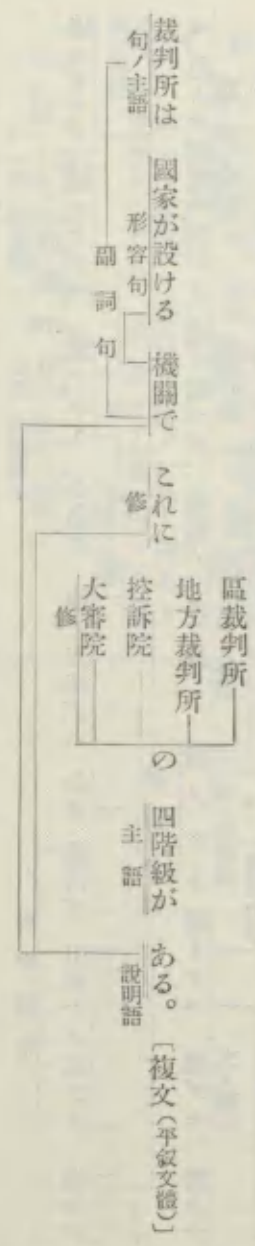 裁判所は 國家が設ける 機關で これに 區裁判所 地方裁判所 控訴院 大審院 の 四階級が ある。〔複文(平叙文體)〕
句ノ主語 形容句 副詞句 修 修 主語 說明語